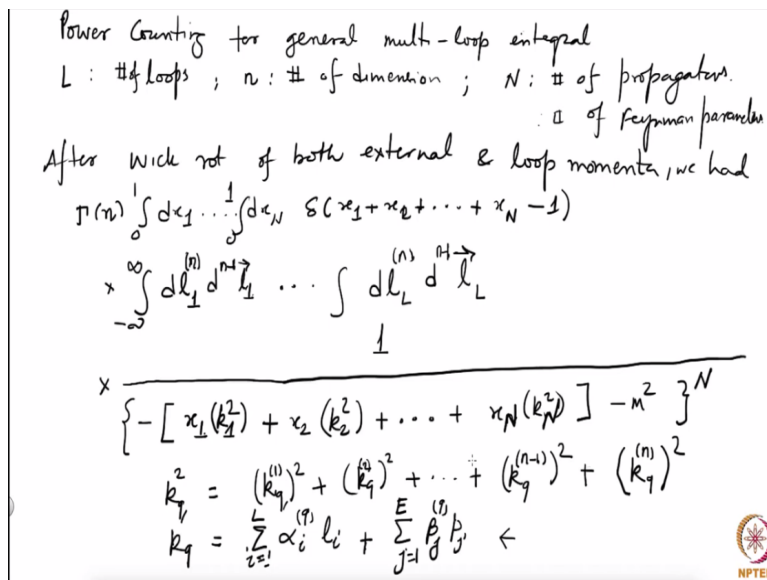 Power Counting for general multi-loop integral
L : # of loops ; n : # of dimension ; N : # of propagators.
: # of Feynman parameters
After Wick rot of both external & loop momenta, we had
Γ(n) ∫₀¹ dx₁ .... ∫₀¹ dx_N δ(x₁ + x₂ + ... + x_N − 1)
× ∫_{-∞}^{∞} dl₁^{(n)} d^{n-1}l⃗₁ ... ∫ dl_L^{(n)} d^{n-1}l⃗_L
× 1 / { −[ x₁(k₁²) + x₂(k₂²) + ... + x_N(k_N²) ] − m² }^N
k_q² = (k_q^{(1)})² + (k_q^{(2)})² + ... + (k_q^{(n-1)})² + (k_q^{(n)})²
k_q = Σ_{i=1}^{L} α_i^{(q)} l_i + Σ_{j=1}^{E} β_j^{(q)} p_j ←
NPTEL